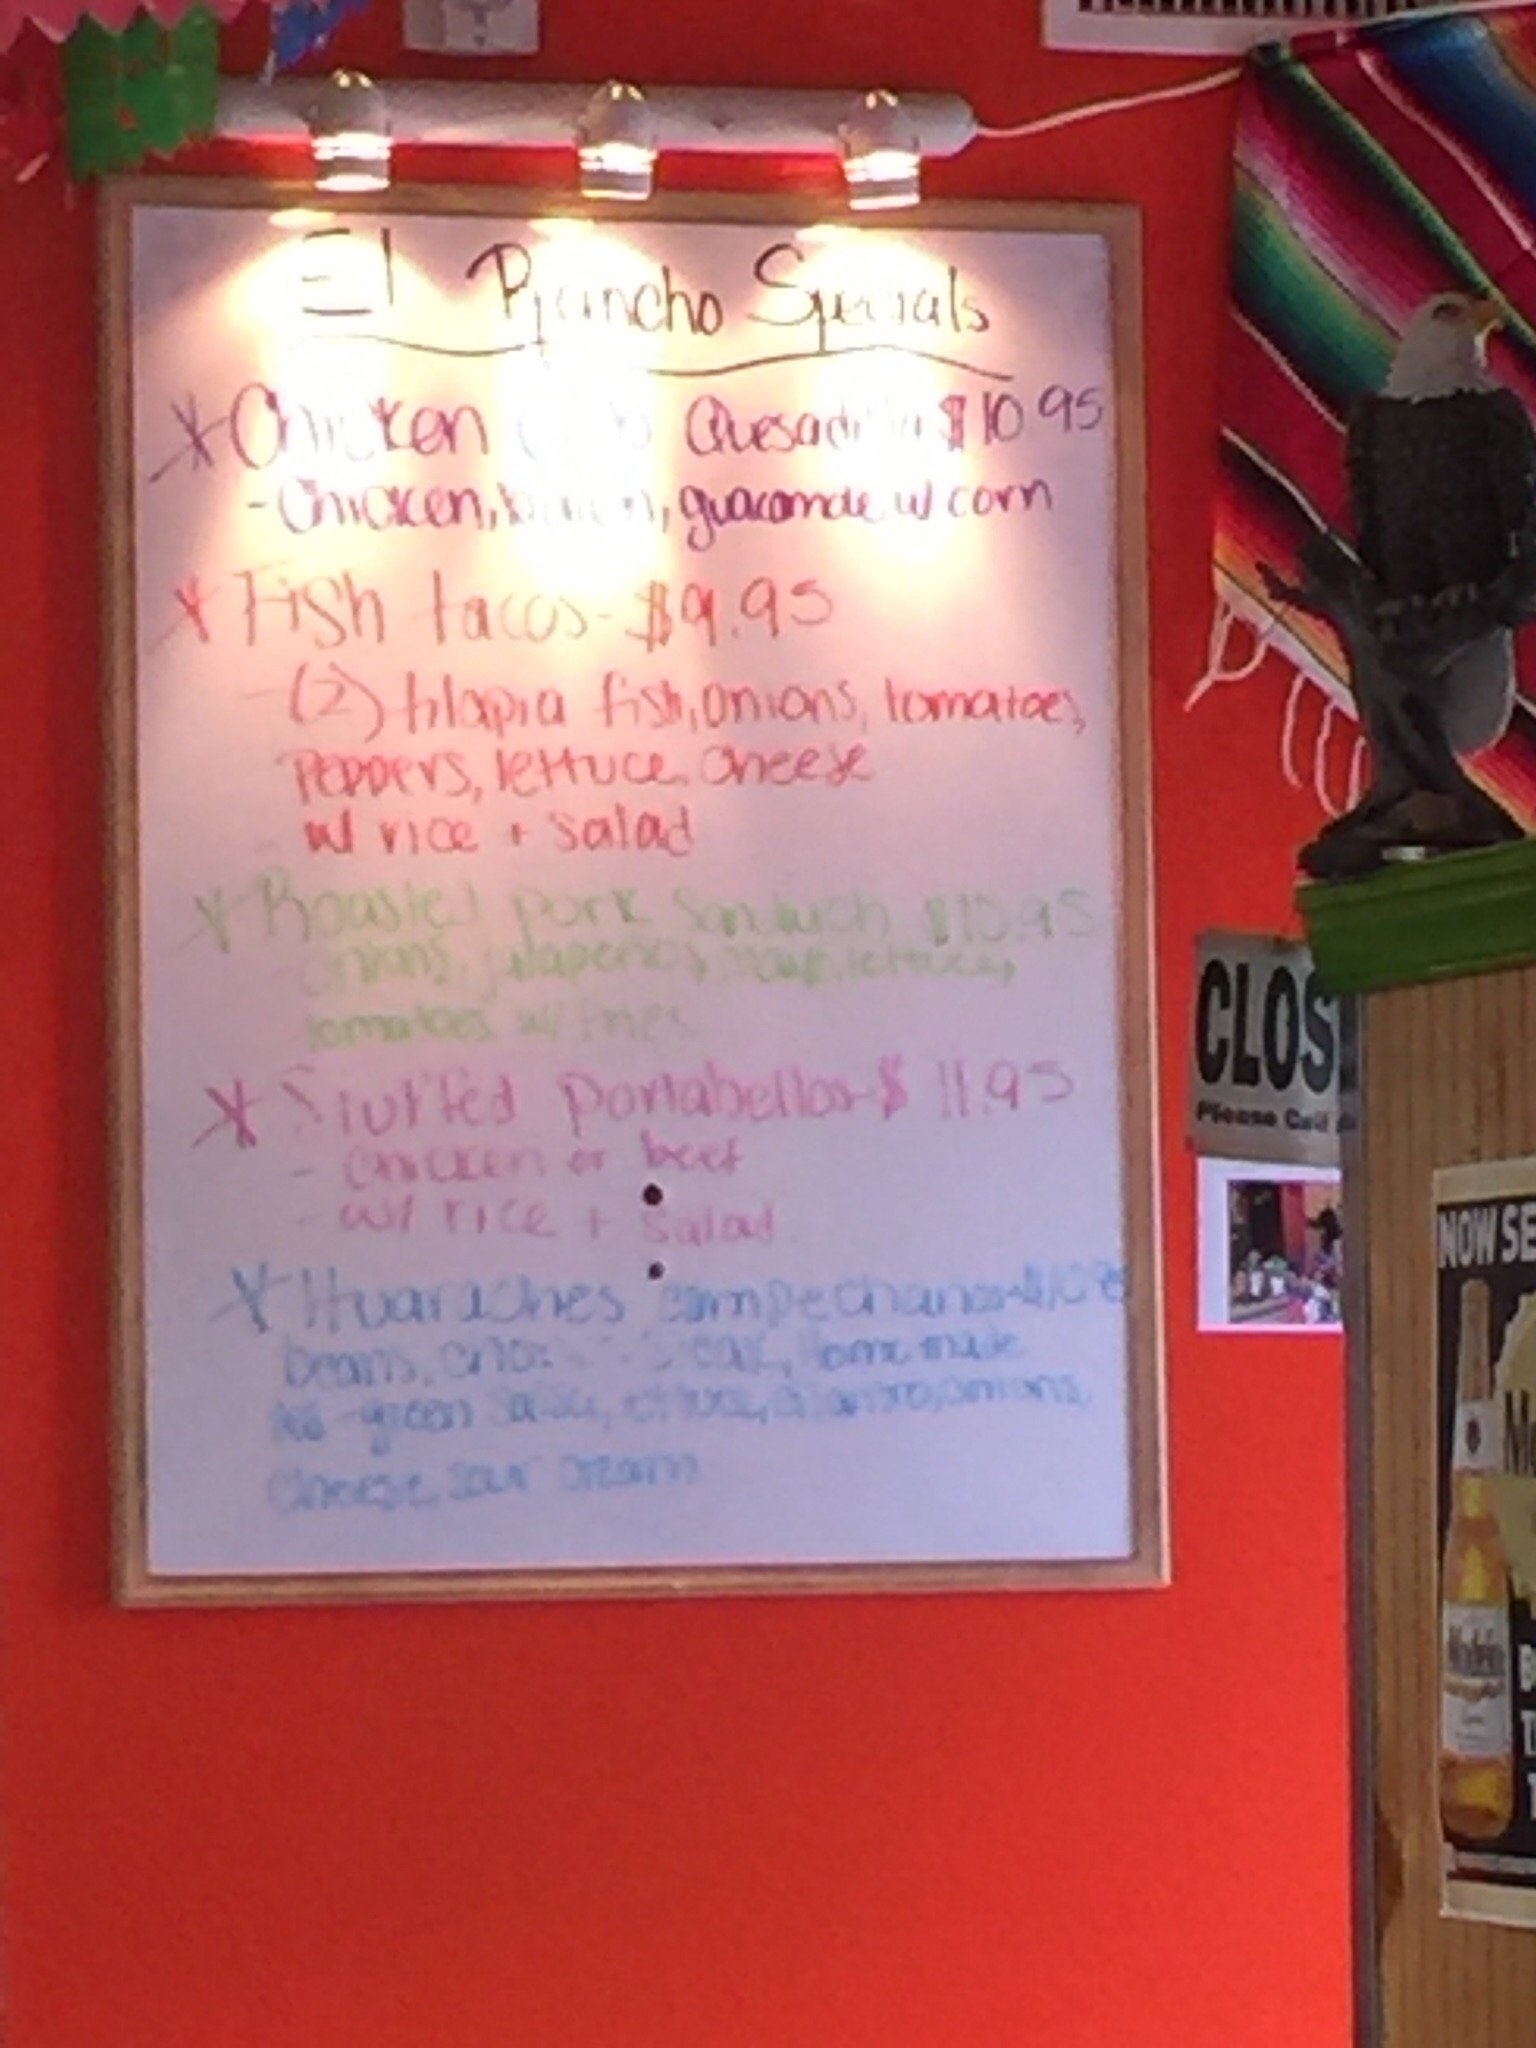 El Rancho Specials
Chicken Quesadilla $10.95
- Chicken, guacamole w/ corn
Fish tacos - $9.95
- (2) tilapia fish, onions, tomatoes,
peppers, lettuce, cheese
w/ rice + salad
Roasted pork sandwich $10.95
onions, jalapeños, lettuce,
tomatoes w/ fries
Stuffed portabellas - $11.95
- chicken or beef
- w/ rice + salad
Huaraches campechanos
beans, home made
green salsa, cilantro, onions,
cheese, sour cream
CLOS
Please Call
NOW SE
Modelo